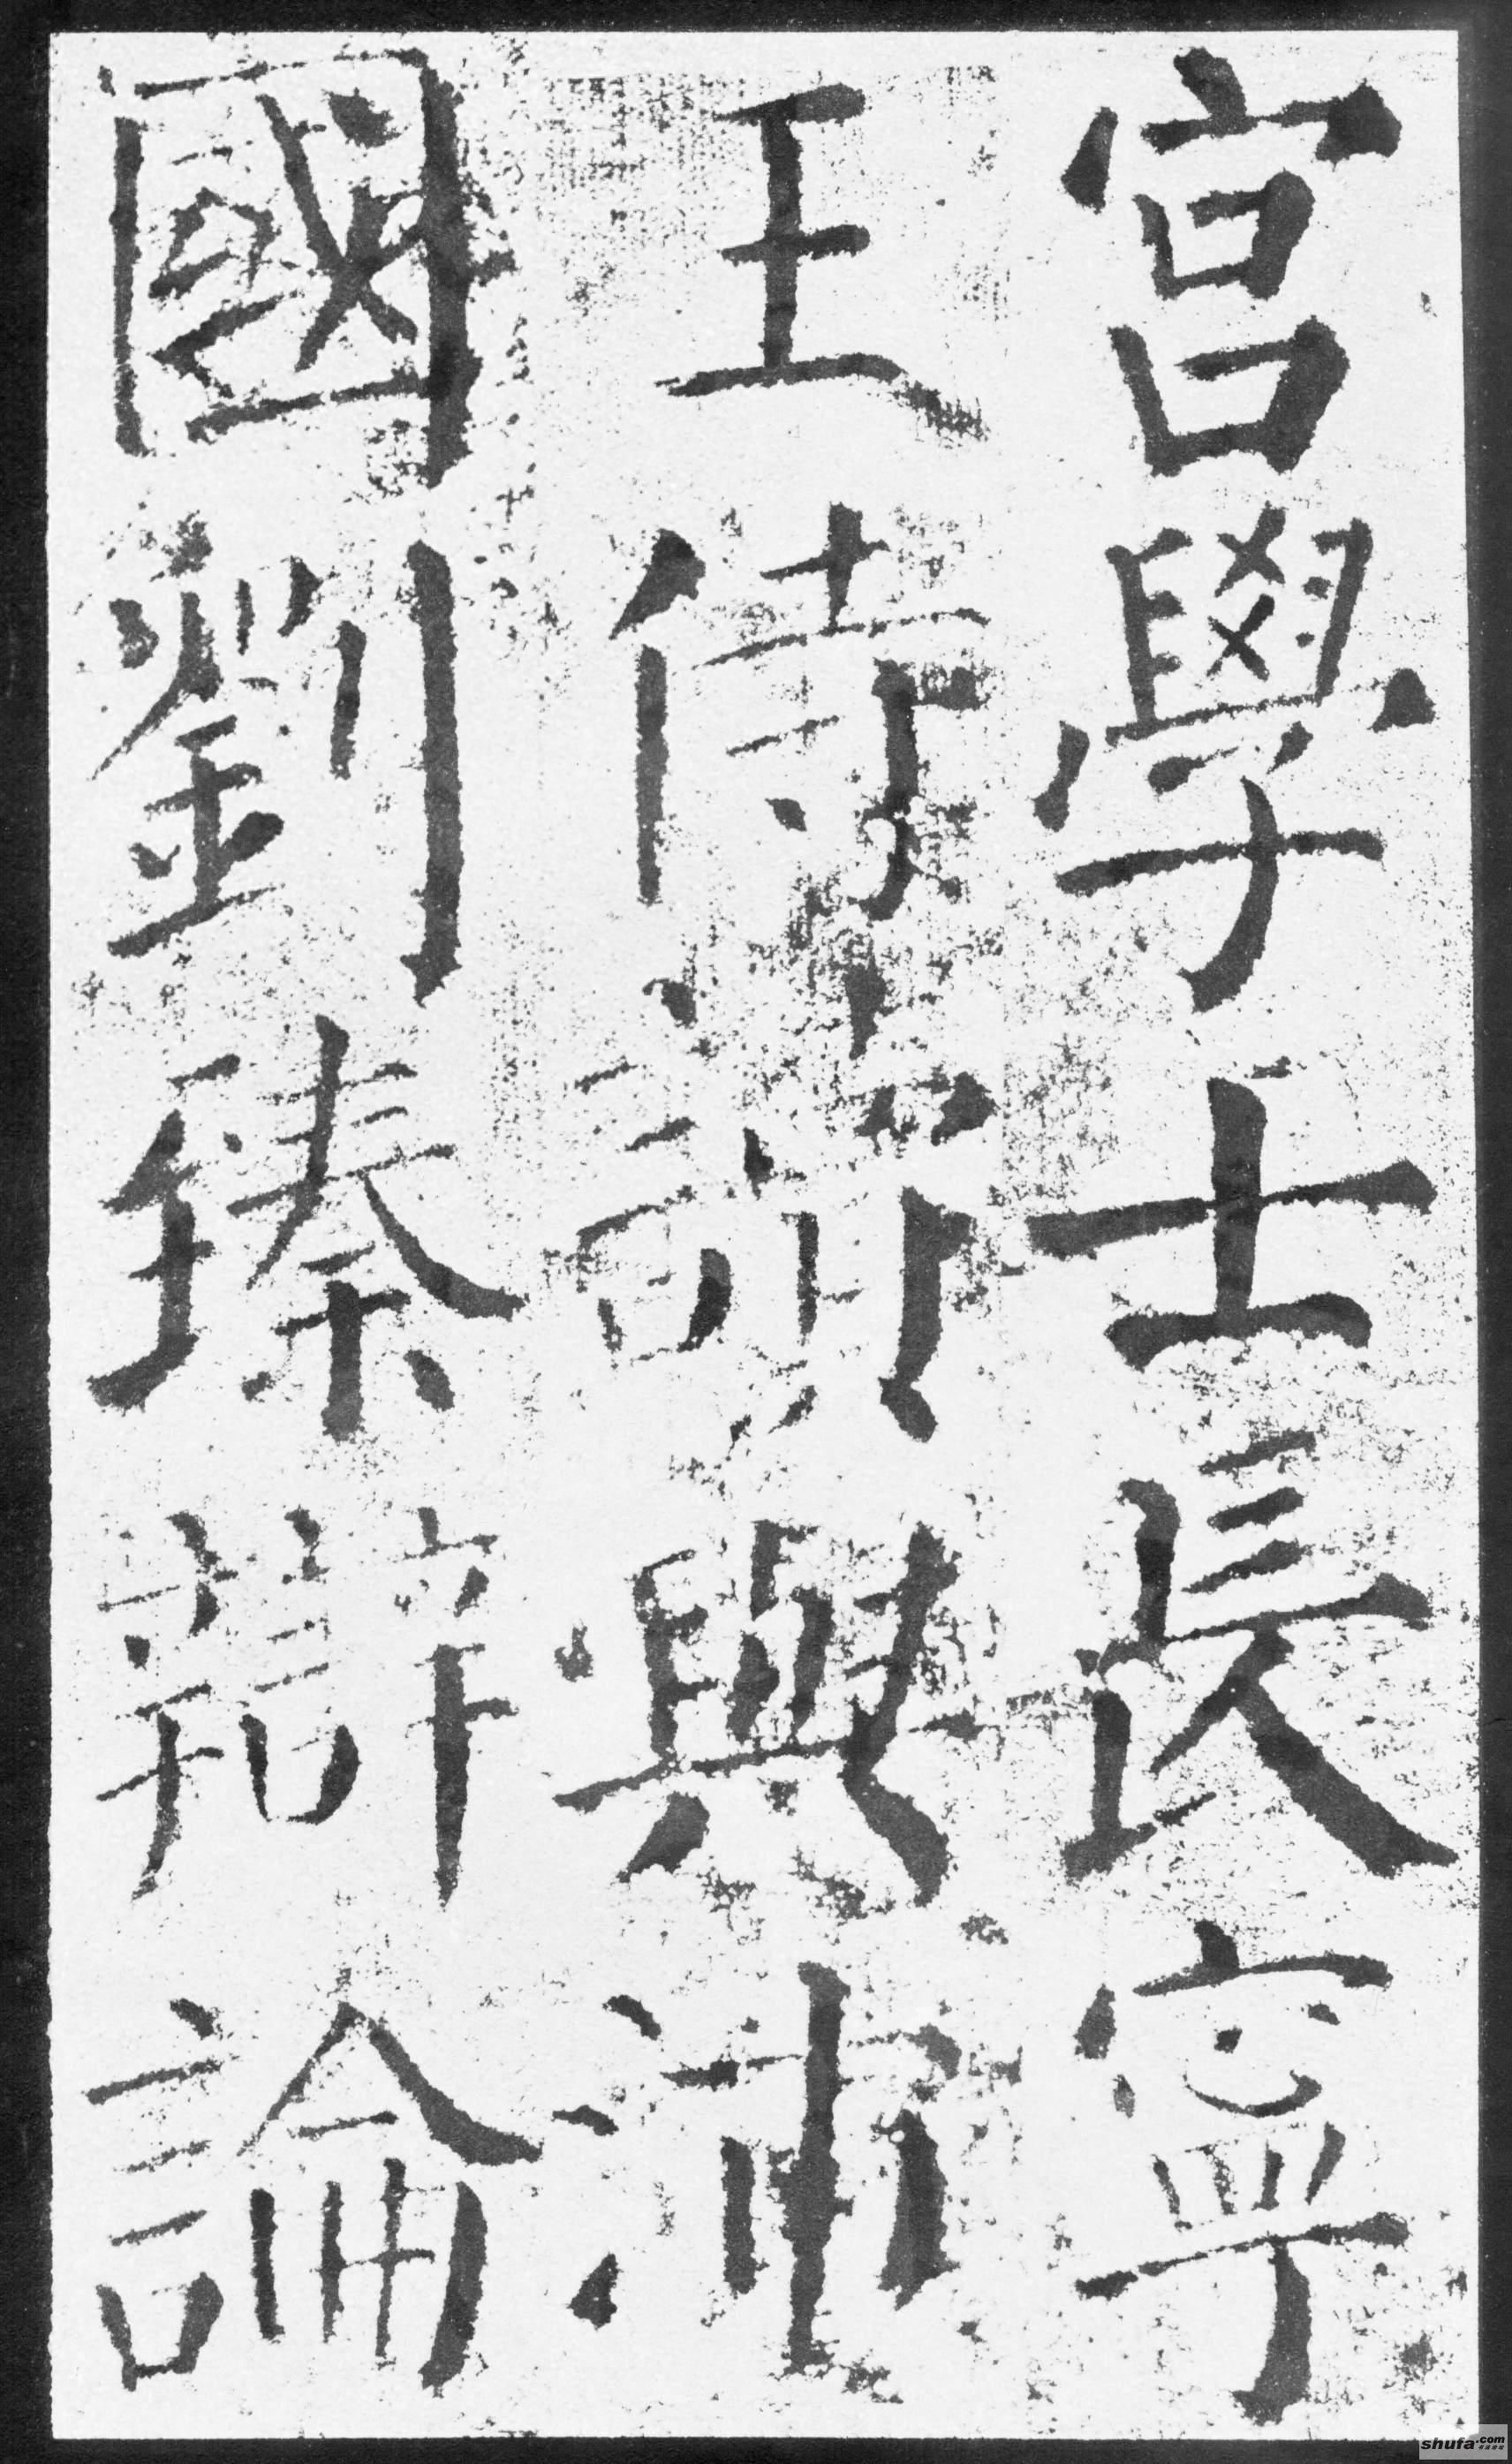 宮學士長寧
王侍讀與沛
國劉臻辯論
shufa.com